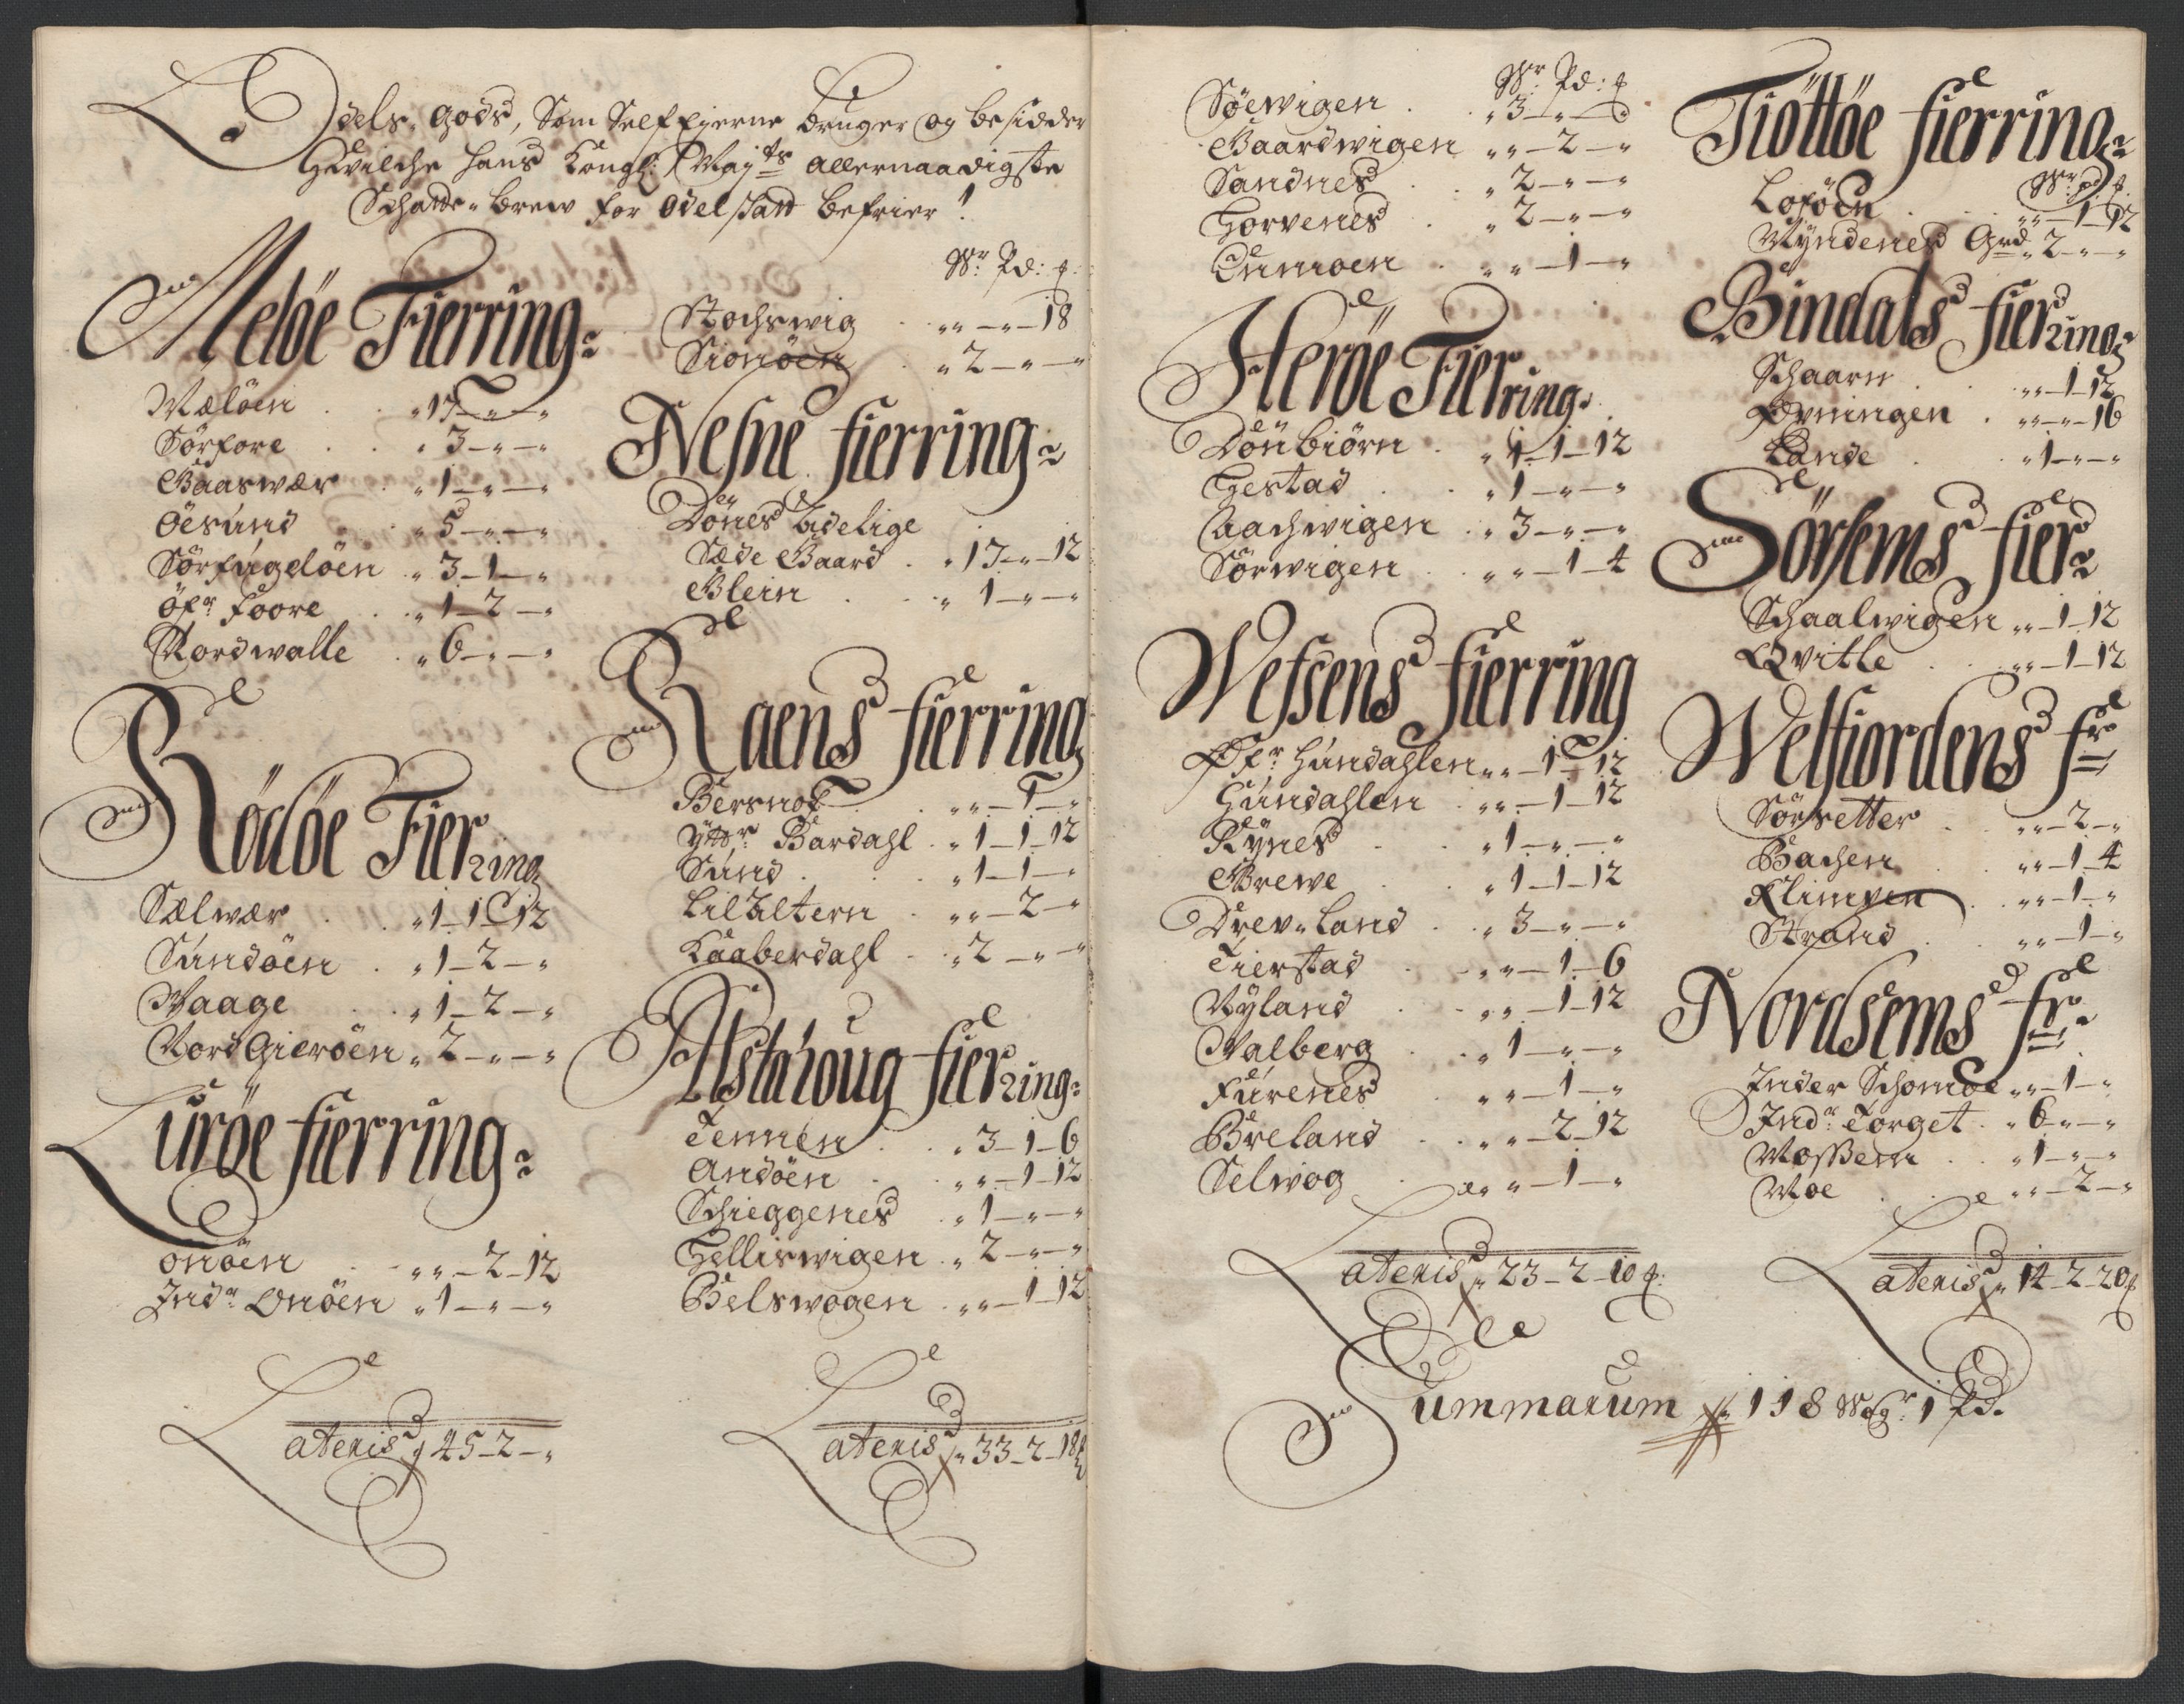 Odels-Gods, Som Selfeierne bruger og besidder
Hvilche hans Kongl: Mayts allernaadigste
Schatte-brew for Odelsatt befrier!
Meløe Fierring:
Mæløen „ 17 — „ — „
Sørfore „ 3 — „ — „
Baaswær „ 1 — „ — „
Øesund „ 5 — „ — „
Sørfugeløen „ 3 — 1 — „
Øfr Foore „ 1 — 2 — „
Nordwalle „ 6 — „ — „
Rødøe Fierring
Sælwær „ 1 — 1 — 12
Sundøen „ 1 — 2 — „
Waage „ 1 — 2 — „
Nord Gierøen „ 2 — „ — „
Lurøe fierring:
Onøen „ „ — 2 — 12
Indr Onøen „ 1 — „ — „
Lateris 45 — 2 — „
Wr: Pd: ꝶ:
Stochswig „ „ — „ — 18
Sionøen „ 2 — „ — „
Nesne fierring:
Dønes Adelige
Sæde Gaard „ 17 — „ — 12
Blein „ 1 — „ — „
Raens fierring
Bersnos „ „ — 1 — „
Yttr: Bardahl „ 1 — 1 — 12
Sund „ 1 — 1 — „
Lil Altern „ „ — 2 — „
Kaaberdahl „ 2 — „ — „
Alstahoug fierring:
Tennen „ 3 — 1 — 6
Andøen „ „ — 1 — 12
Schieggenes „ 1 — „ — „
Helliswigen „ 2 — „ — „
Belswogen „ „ — 1 — 12
Lateris „ 33 — 2 — 18
Wr: Pd: ꝶ
Søewigen „ 3 — „ — „
Baardwigen „ „ — 2 — „
Sandnes „ 2 — „ — „
Horvenes „ 2 — „ — „
„ „ — 1 — „
Herøe Fierring:
Dønbiørn „ 1 — 1 — 12
Gestad „ 1 — „ — „
Aachwigen „ 3 — „ — „
Sørwigen „ „ — 1 — 4
Wefsens fierring
Øfr Hundahlen „ „ — 1 — 12
Hundahlen „ „ — 1 — 12
Rynes „ 1 — „ — „
Grewe „ 1 — 1 — 12
Drev-land „ 3 — „ — „
Tierstad „ „ — 1 — 6
Nyland „ „ — 1 — 12
Walberg „ 1 — „ — „
Furenes „ „ — 1 — „
Breland „ „ — 2 — 12
Selwog „ „ — 1 — „
Lateris „ 23 — 2 — 10 ꝶ:
Tiøttøe fierring:
Wr: Pd: ꝶ.
Loføen „ „ — 1 — 12
Myndenes Grd „ 2 — „ — „
Bindals fierring:
Schaarn „ „ — 1 — 12
Øvningen „ „ — „ — 16
Lande „ 1 — „ — „
Sørsems fier:
Schaalwigen „ „ — 1 — 12
Qvitle „ „ — 1 — 12
Welfiordens fr:
Sørsetter „ „ — 2 — „
Bachen „ „ — 1 — 4
Klimpen „ „ — 1 — „
Strand „ „ — 1 — „
Nordsems fr:
Inder Schomoe „ „ — 1 — „
Indr: Torget „ 6 — „ — „
Mossem „ 1 — „ — „
Moe „ „ — 2 — „
Lateris „ 14 — 2 — 20 ꝶ
Summarum 118 Wogr 1 Pd.